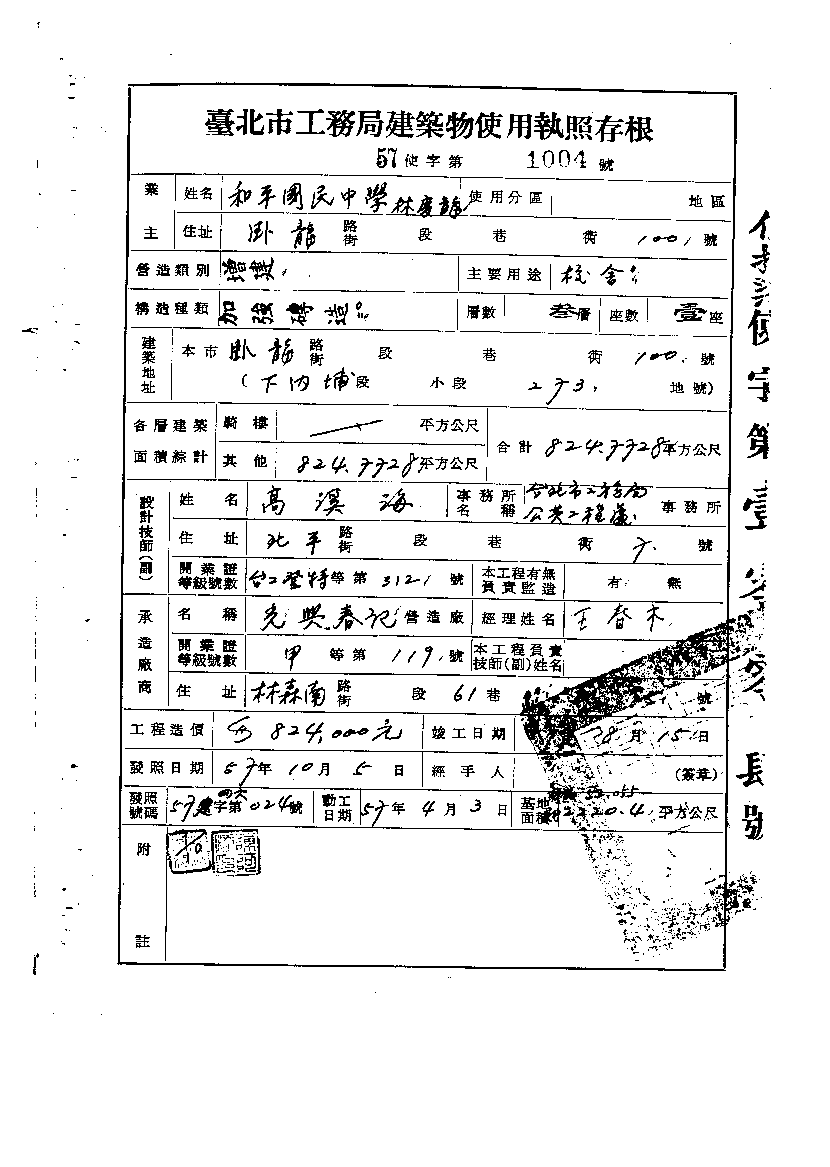 臺北市工務局建築物使用執照存根
57使字第 1004 號
業主 姓名 和平國民中學 林慶龍 使用分區 地區
住址 臥龍 路街 段 巷 衖 100 號
營造類別 增建 主要用途 校舍
構造種類 加強磚造 層數 叁層 座數 壹座
建築地址 本市 臥龍 路街 段 巷 衖 100 號
(下內埔段 小段 273 地號)
各層建築面積綜計 騎樓 平方公尺 合計 824.7728平方公尺
其他 824.7728平方公尺
設計技師(副) 姓名 高溪海 事務所名稱 台北市工務局 事務所
住址 北平 路街 段 巷 衖 7 號
開業證等級號數 等第 3121 號 本工程有無負責監造 有 無
承造廠商 名稱 光興春記 營造廠 經理姓名 王春木
開業證等級號數 甲 等第 119 號 本工程負責技師(副)姓名
住址 林森南 路街 段 61 巷 號
工程造價 824,000元 竣工日期 8月15日
發照日期 57年10月5日 經手人 (簽章)
發照號碼 57建字第024號 動工日期 57年4月3日 基地面積 平方公尺
附註
使字第壹零零 號